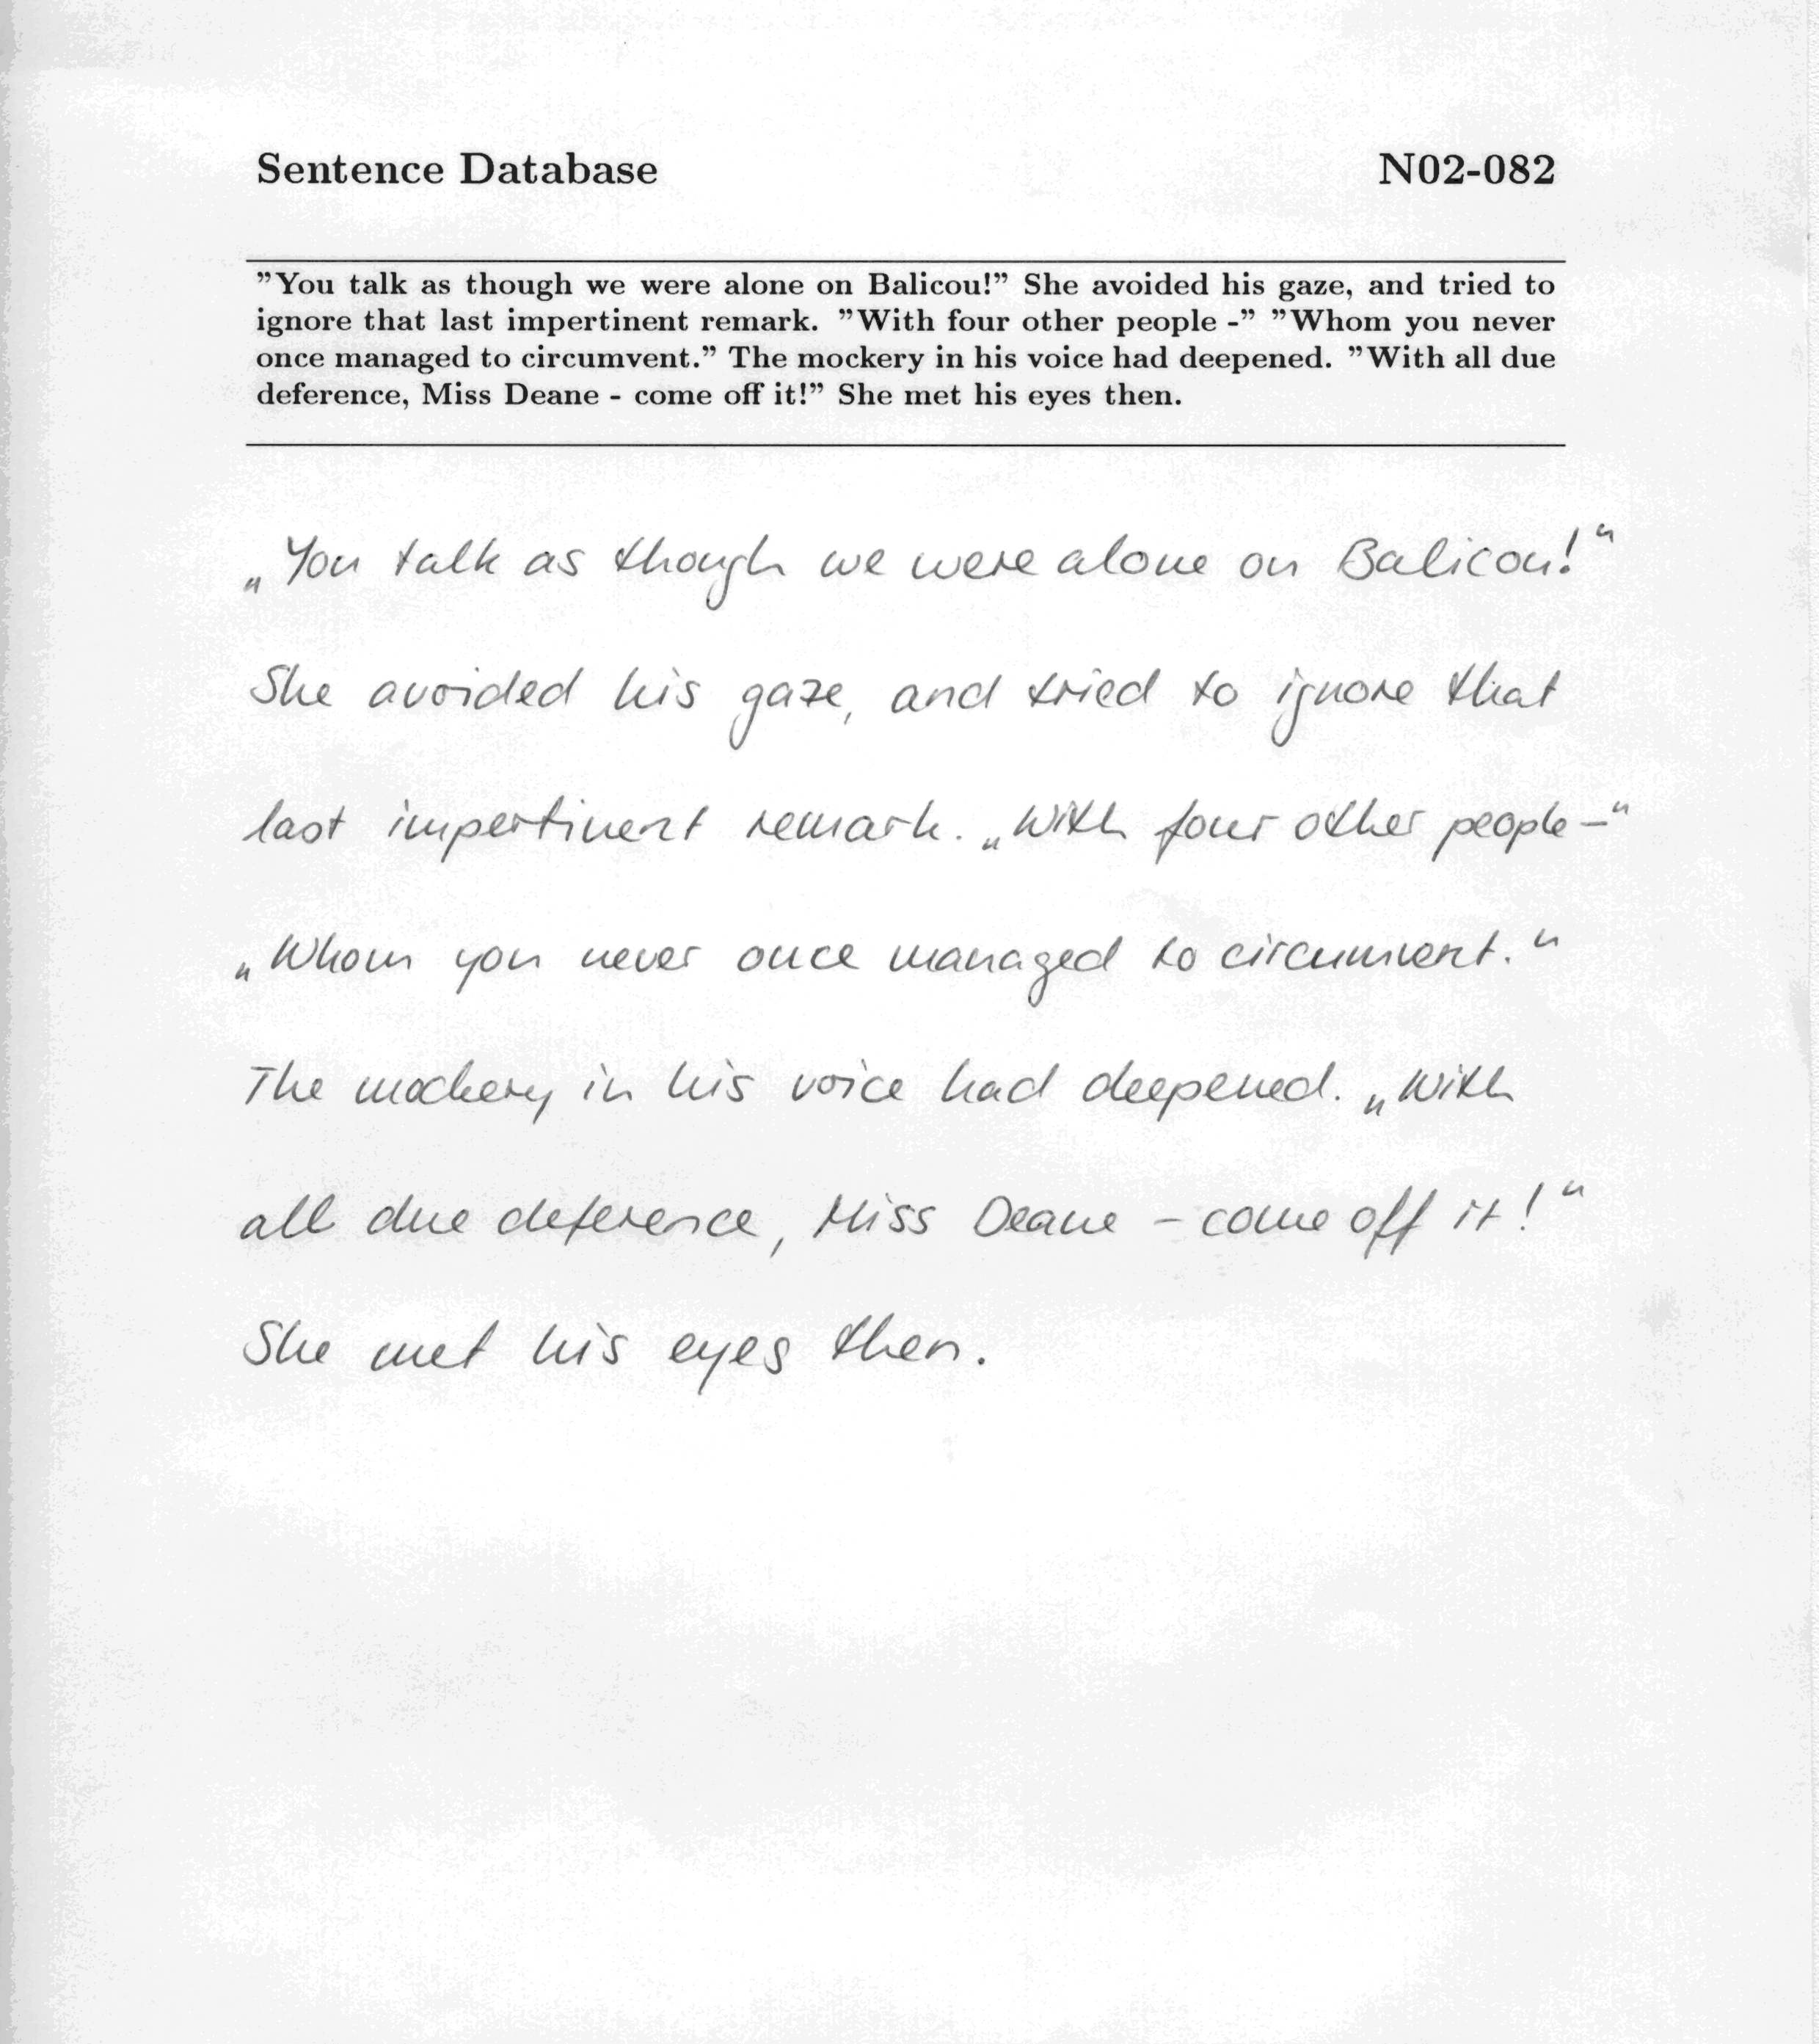 Sentence Database N02-082
”You talk as though we were alone on Balicou!” She avoided his gaze, and tried to
ignore that last impertinent remark. ”With four other people -” ”Whom you never
once managed to circumvent.” The mockery in his voice had deepened. ”With all due
deference, Miss Deane - come off it!” She met his eyes then.
„You talk as though we were alone on Balicou!“
She avoided his gaze, and tried to ignore that
last impertinent remark. „With four other people –“
„Whom you never once managed to circumvent.“
The mockery in his voice had deepened. „With
all due deference, Miss Deane – come off it!“
She met his eyes then.